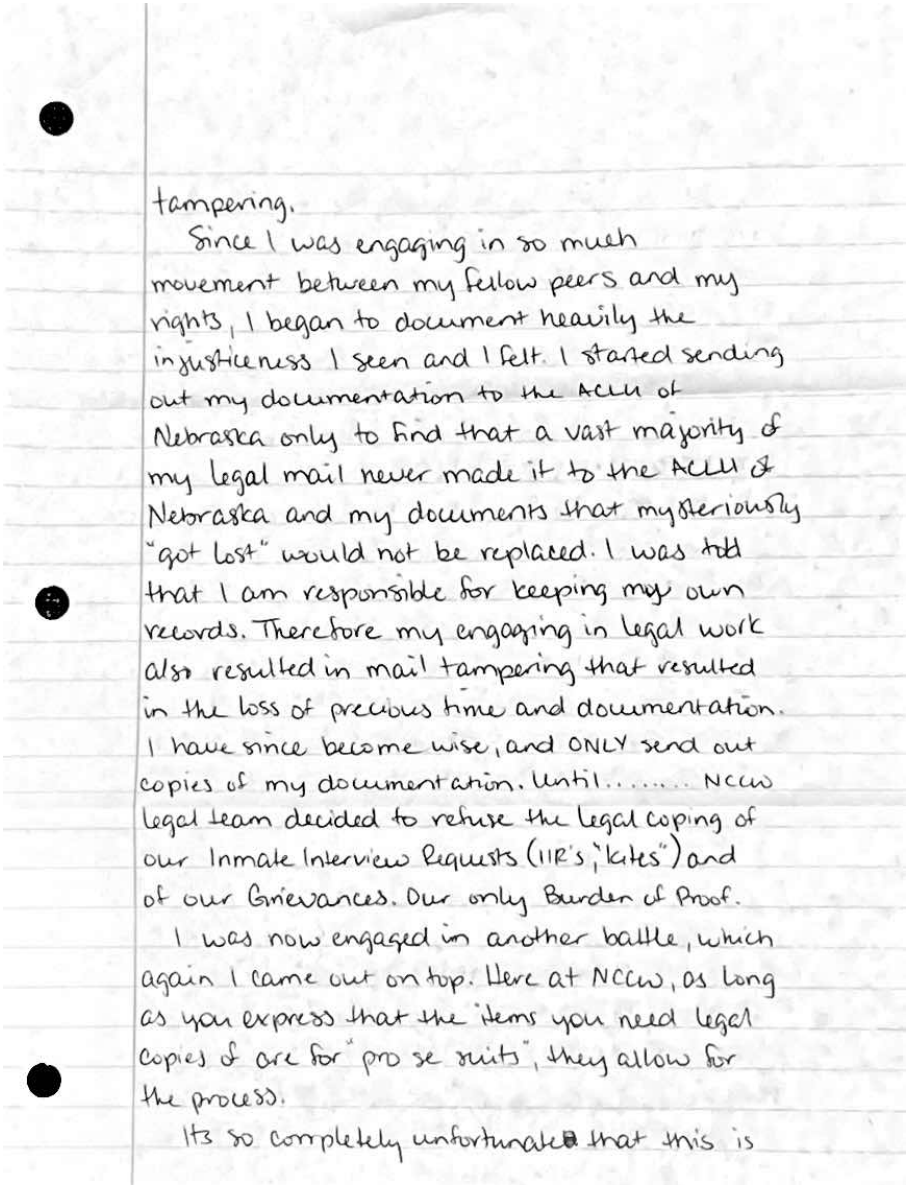 tampering.
Since I was engaging in so much
movement between my fellow peers and my
rights, I began to document heavily the
injusticeness I seen and I felt. I started sending
out my documentation to the ACLU of
Nebraska only to find that a vast majority of
my legal mail never made it to the ACLU of
Nebraska and my documents that mysteriously
"got lost" would not be replaced. I was told
that I am responsible for keeping my own
records. Therefore my engaging in legal work
also resulted in mail tampering that resulted
in the loss of precious time and documentation.
I have since become wise, and ONLY send out
copies of my documentation. Until........ NCCW
legal team decided to refuse the legal coping of
our Inmate Interview Requests (IIR's, "kites") and
of our Grievances. Our only Burden of Proof.
I was now engaged in another battle, which
again I came out on top. Here at NCCW, as long
as you express that the items you need legal
copies of are for "pro se suits", they allow for
the process.
Its so completely unfortunate that this is